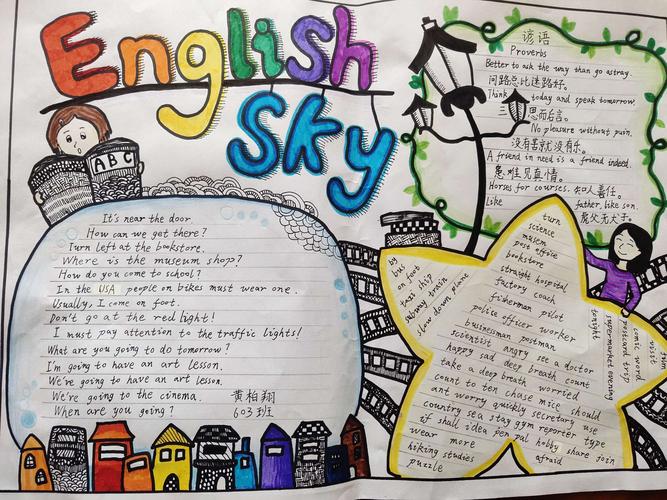 English
Sky
ABC
It's near the door.
How can we get there?
Turn left at the bookstore.
Where is the museum shop?
How do you come to school?
In the USA people on bikes must wear one.
Usually, I come on foot.
Don't go at the red light!
I must pay attention to the traffic lights!
What are you going to do tomorrow?
I'm going to have an art lesson.
We're going to have an art lesson.
We're going to the cinema.
When are you going?
黄柏翔
603班
谚语
Proverbs
Better to ask the way than go astray.
问路总比迷路好。
Think today and speak tomorrow
三思而后言。
No pleasure without pain.
没有苦就没有乐。
A friend in need is a friend indeed.
患难见真情。
Horses for courses. 知人善任。
Like father, like son.
虎父无犬子。
turn
science
musem
post office
bookstore
straight hospital
factory coach
fisherman pilot
police officer worker
businessman postman
scientist angry see a doctor
happy sad deep breath count
take a deep breath worried
count to ten chase mice should
ant worry quickly secretary use
country sea stay gym reporter type
if shall idea pen pal hobby share join
wear more
hiking studies afraid
puzzle
by
bus
on foot
taxi ship
subway train
slow down plane
tonight
supermarket evening
postcard trip
comic word
visit